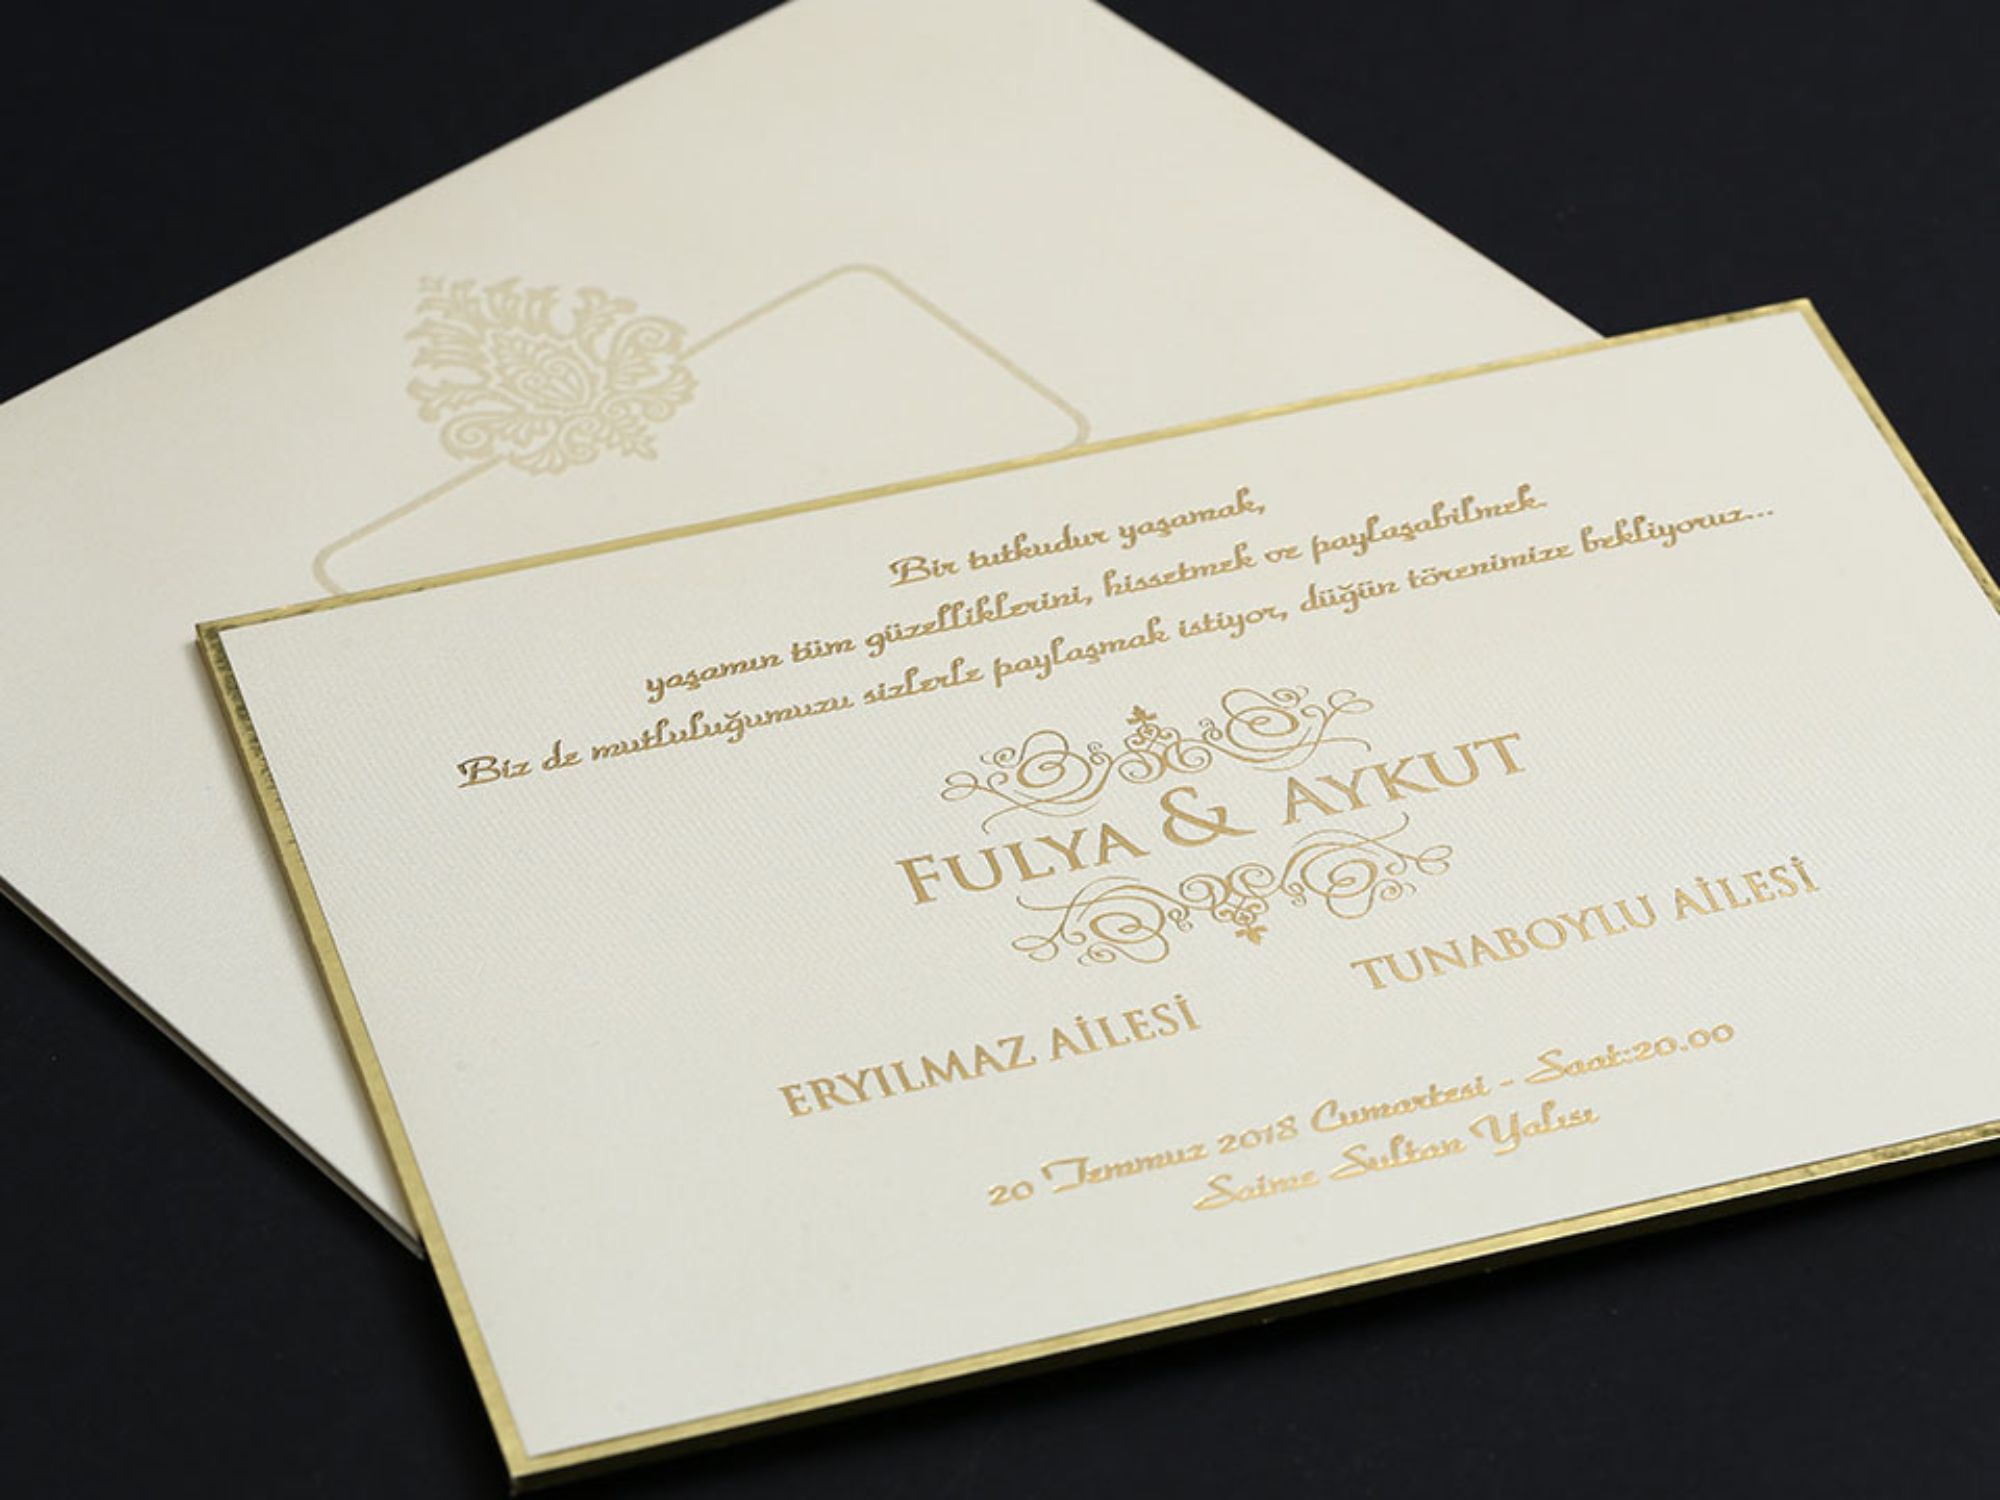 Bir tutkudur yaşamak,
yaşamın tüm güzelliklerini, hissetmek ve paylaşabilmek.
Biz de mutluluğumuzu sizlerle paylaşmak istiyor, düğün törenimize bekliyoruz...
FULYA & AYKUT
ERYILMAZ AİLESİ
TUNABOYLU AİLESİ
20 Temmuz 2018 Cumartesi - Saat:20.00
Saime Sultan Yalısı